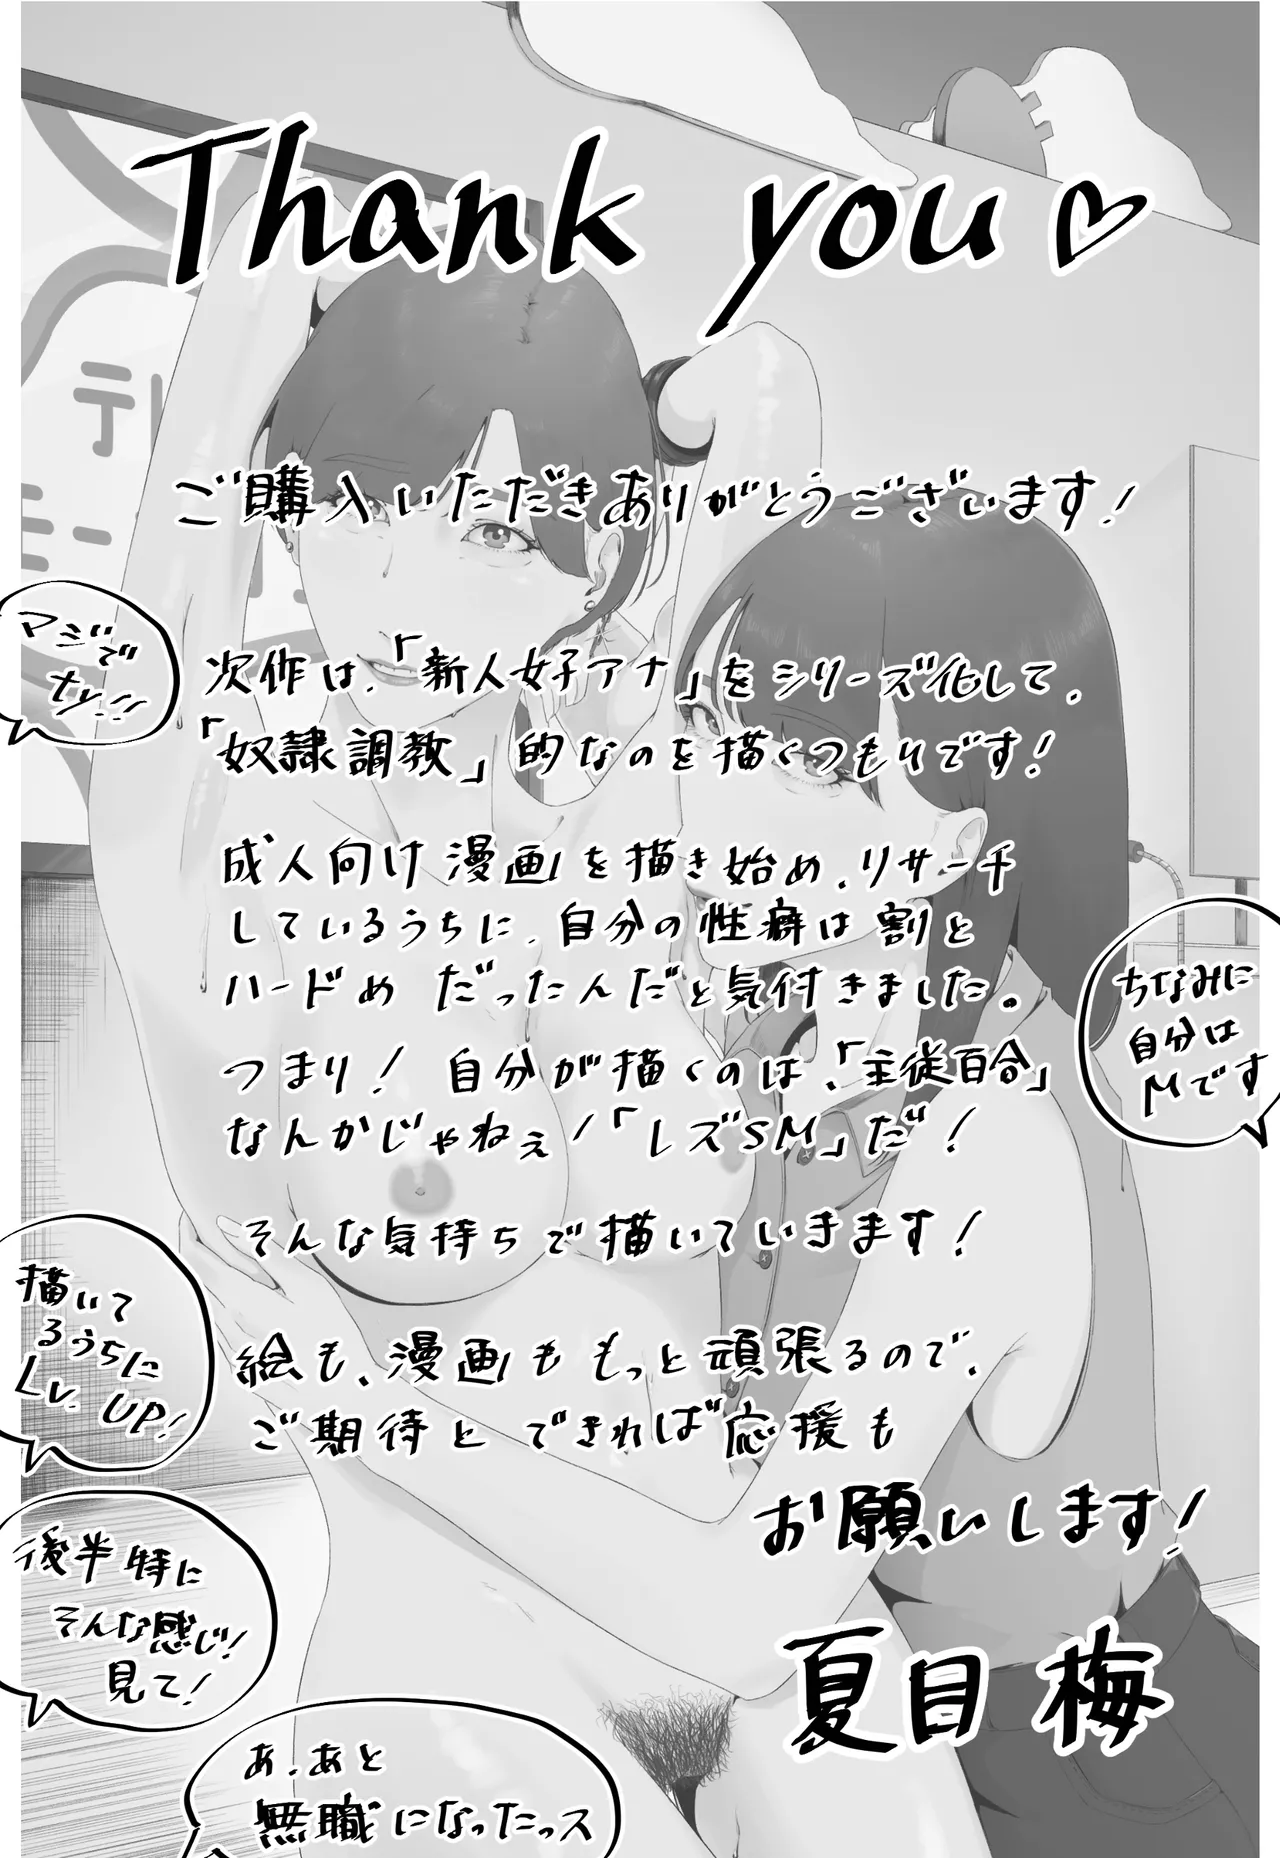 Thank you♡
ご購入いただきありがとうございます!
マジで
ナレ…!!
次作は、「新人女子アナ」をシリーズ化して、
「奴隷調教」的なのを描くつもりです!
成人向け漫画を描き始め、リサーチ
しているうちに、自分の性癖は割と
ハードめだったんだと気付きました。
ちなみに
自分は
Mです
つまり! 自分が描くのは、「主従百合」
なんかじゃねぇ!「レズSM」だ!
そんな気持ちで描いていきます!
描いて
るうちに
Lv. UP!
絵も、漫画ももっと頑張るので、
ご期待とできれば応援も
お願いします!
後半特に
そんな感じ!
見て!
夏目 梅
あ、あと
無職になったっス
テレ
モー